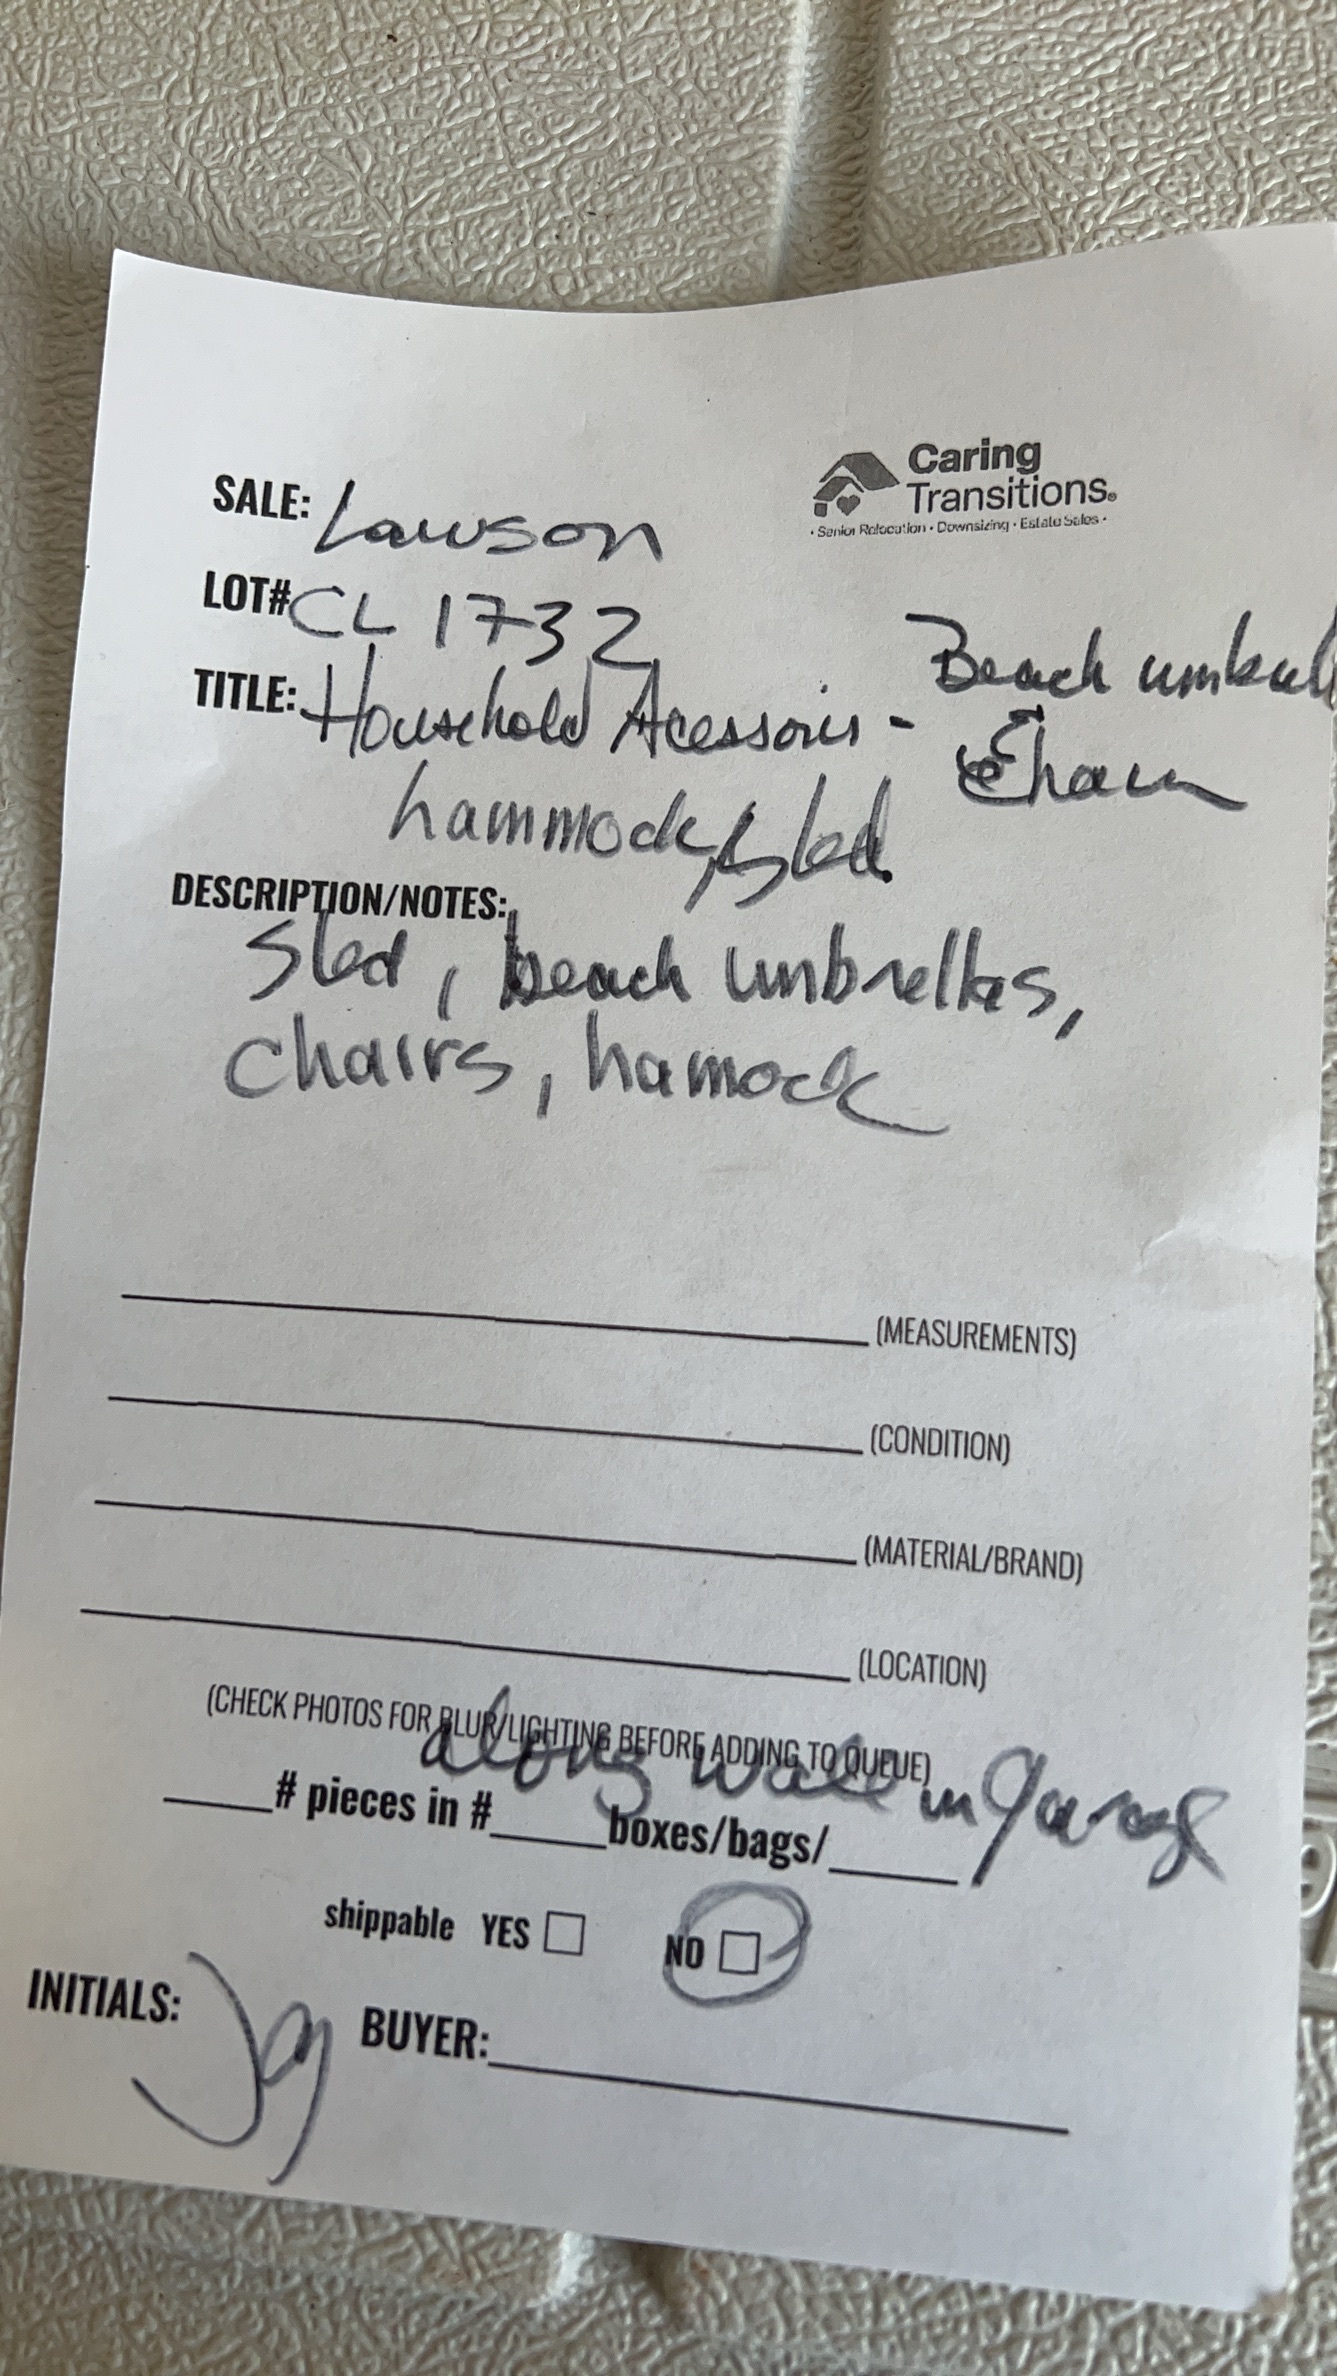 Caring
Transitions®
• Senior Relocation • Downsizing • Estate Sales •
SALE: Lawson
LOT# CL 1732
TITLE: Household Acessoris - Beach umbrell
& Chairs
hammock, sled
DESCRIPTION/NOTES:
Sled, beach umbrellas,
chairs, hamock
(MEASUREMENTS)
(CONDITION)
(MATERIAL/BRAND)
(LOCATION)
(CHECK PHOTOS FOR BLUR/LIGHTING BEFORE ADDING TO QUEUE)
along wall in Garage
# pieces in # boxes/bags/
shippable YES NO
INITIALS: BUYER: